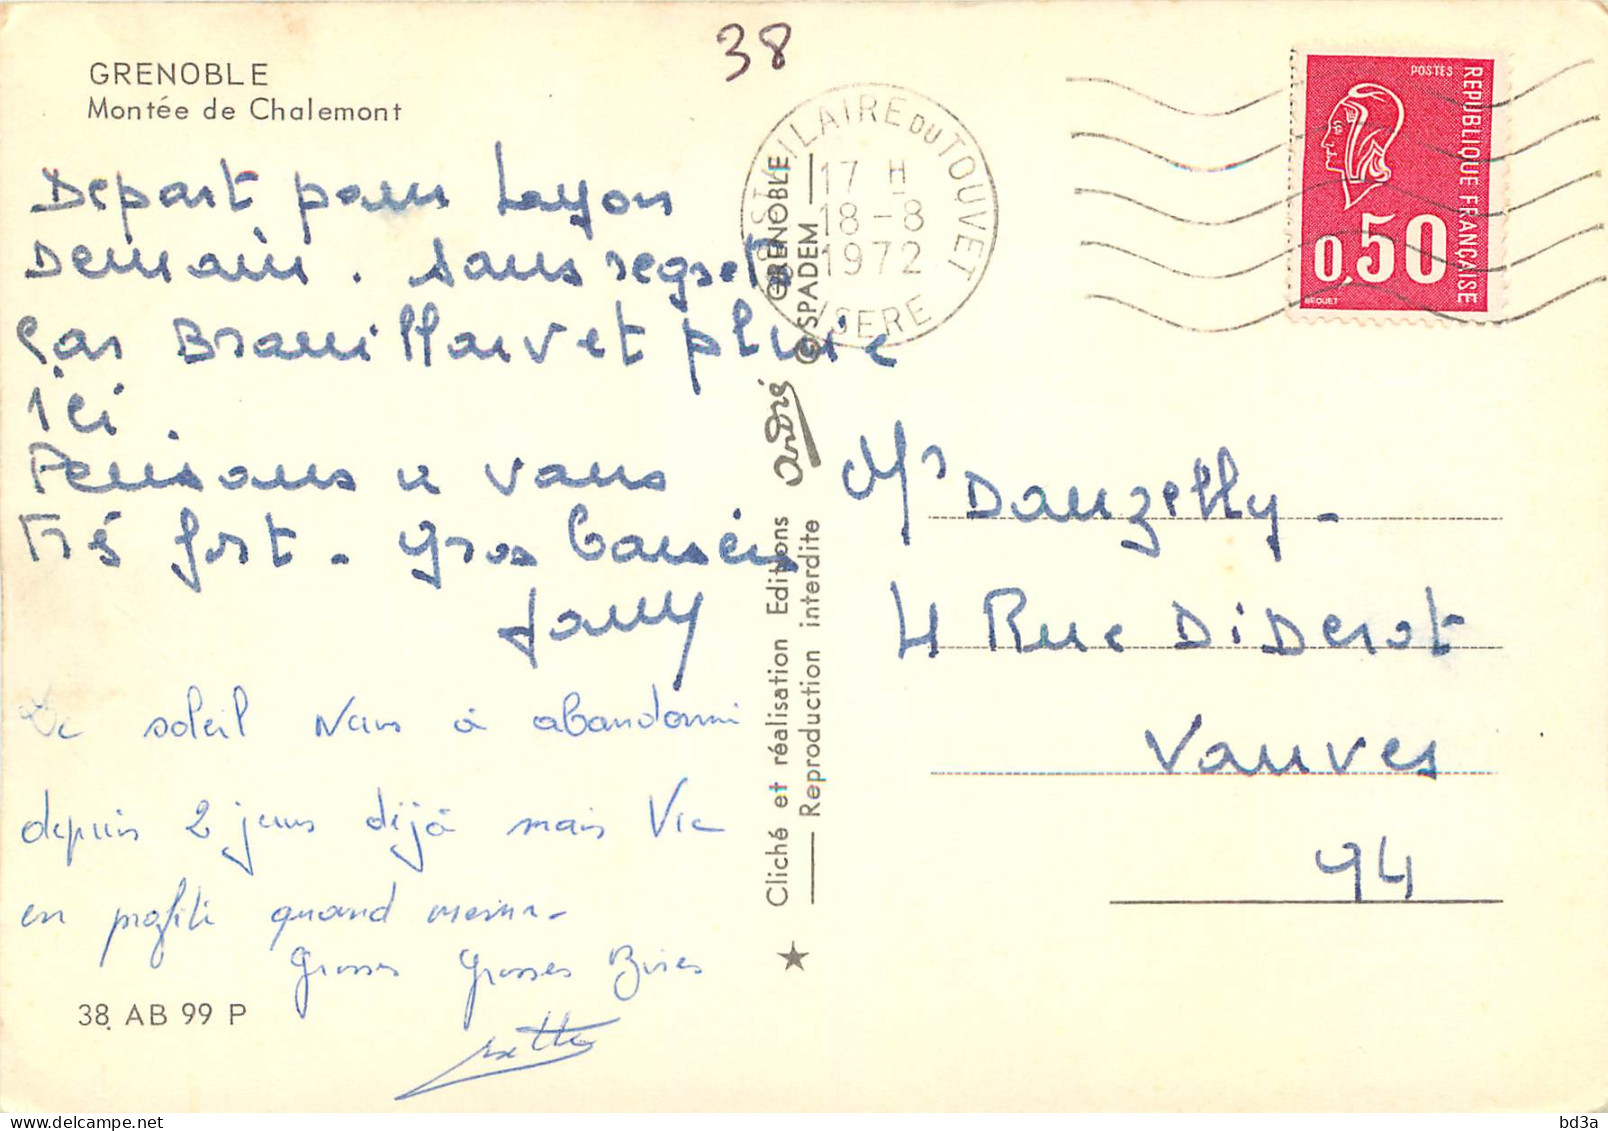 38
GRENOBLE
Montée de Chalemont
Depart pour Layon
Demain. Sans regret
Car Brouillarv et pluie
ici.
Pensons a vous
Trés fort - Gros
Le soleil Nous à abandonné
depuis 2 jours déjà mais Vic
en profite quand meme -
Grosses Grosses Bises
38. AB 99 P
Cliché et réalisation Editions André © SPADEM GRENOBLE
Reproduction interdite
ST HILAIRE DU TOUVET
17 H
18-8
1972
ISERE
POSTES
REPUBLIQUE FRANÇAISE
0,50
BEQUET
Mr Dauzelly -
4 Rue DiDerot
Vauves
94
delcampe.net
bd3a